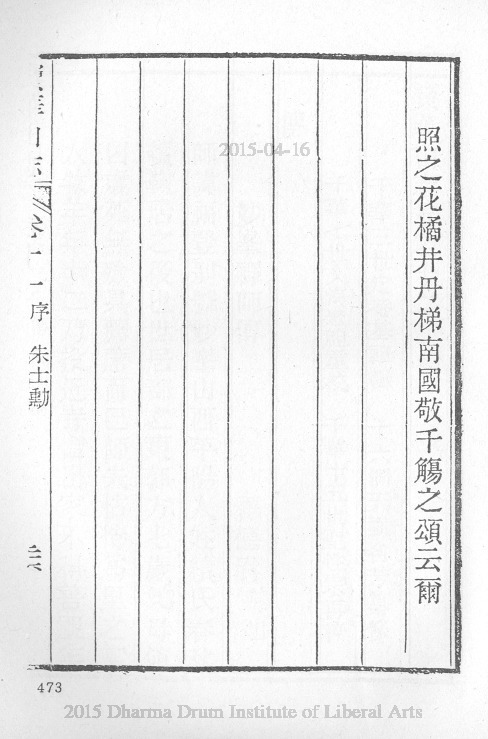 照之花橘井丹梯南國敬千觴之頌云爾
2015-04-16
序 朱士勳
473
2015 Dharma Drum Institute of Liberal Arts